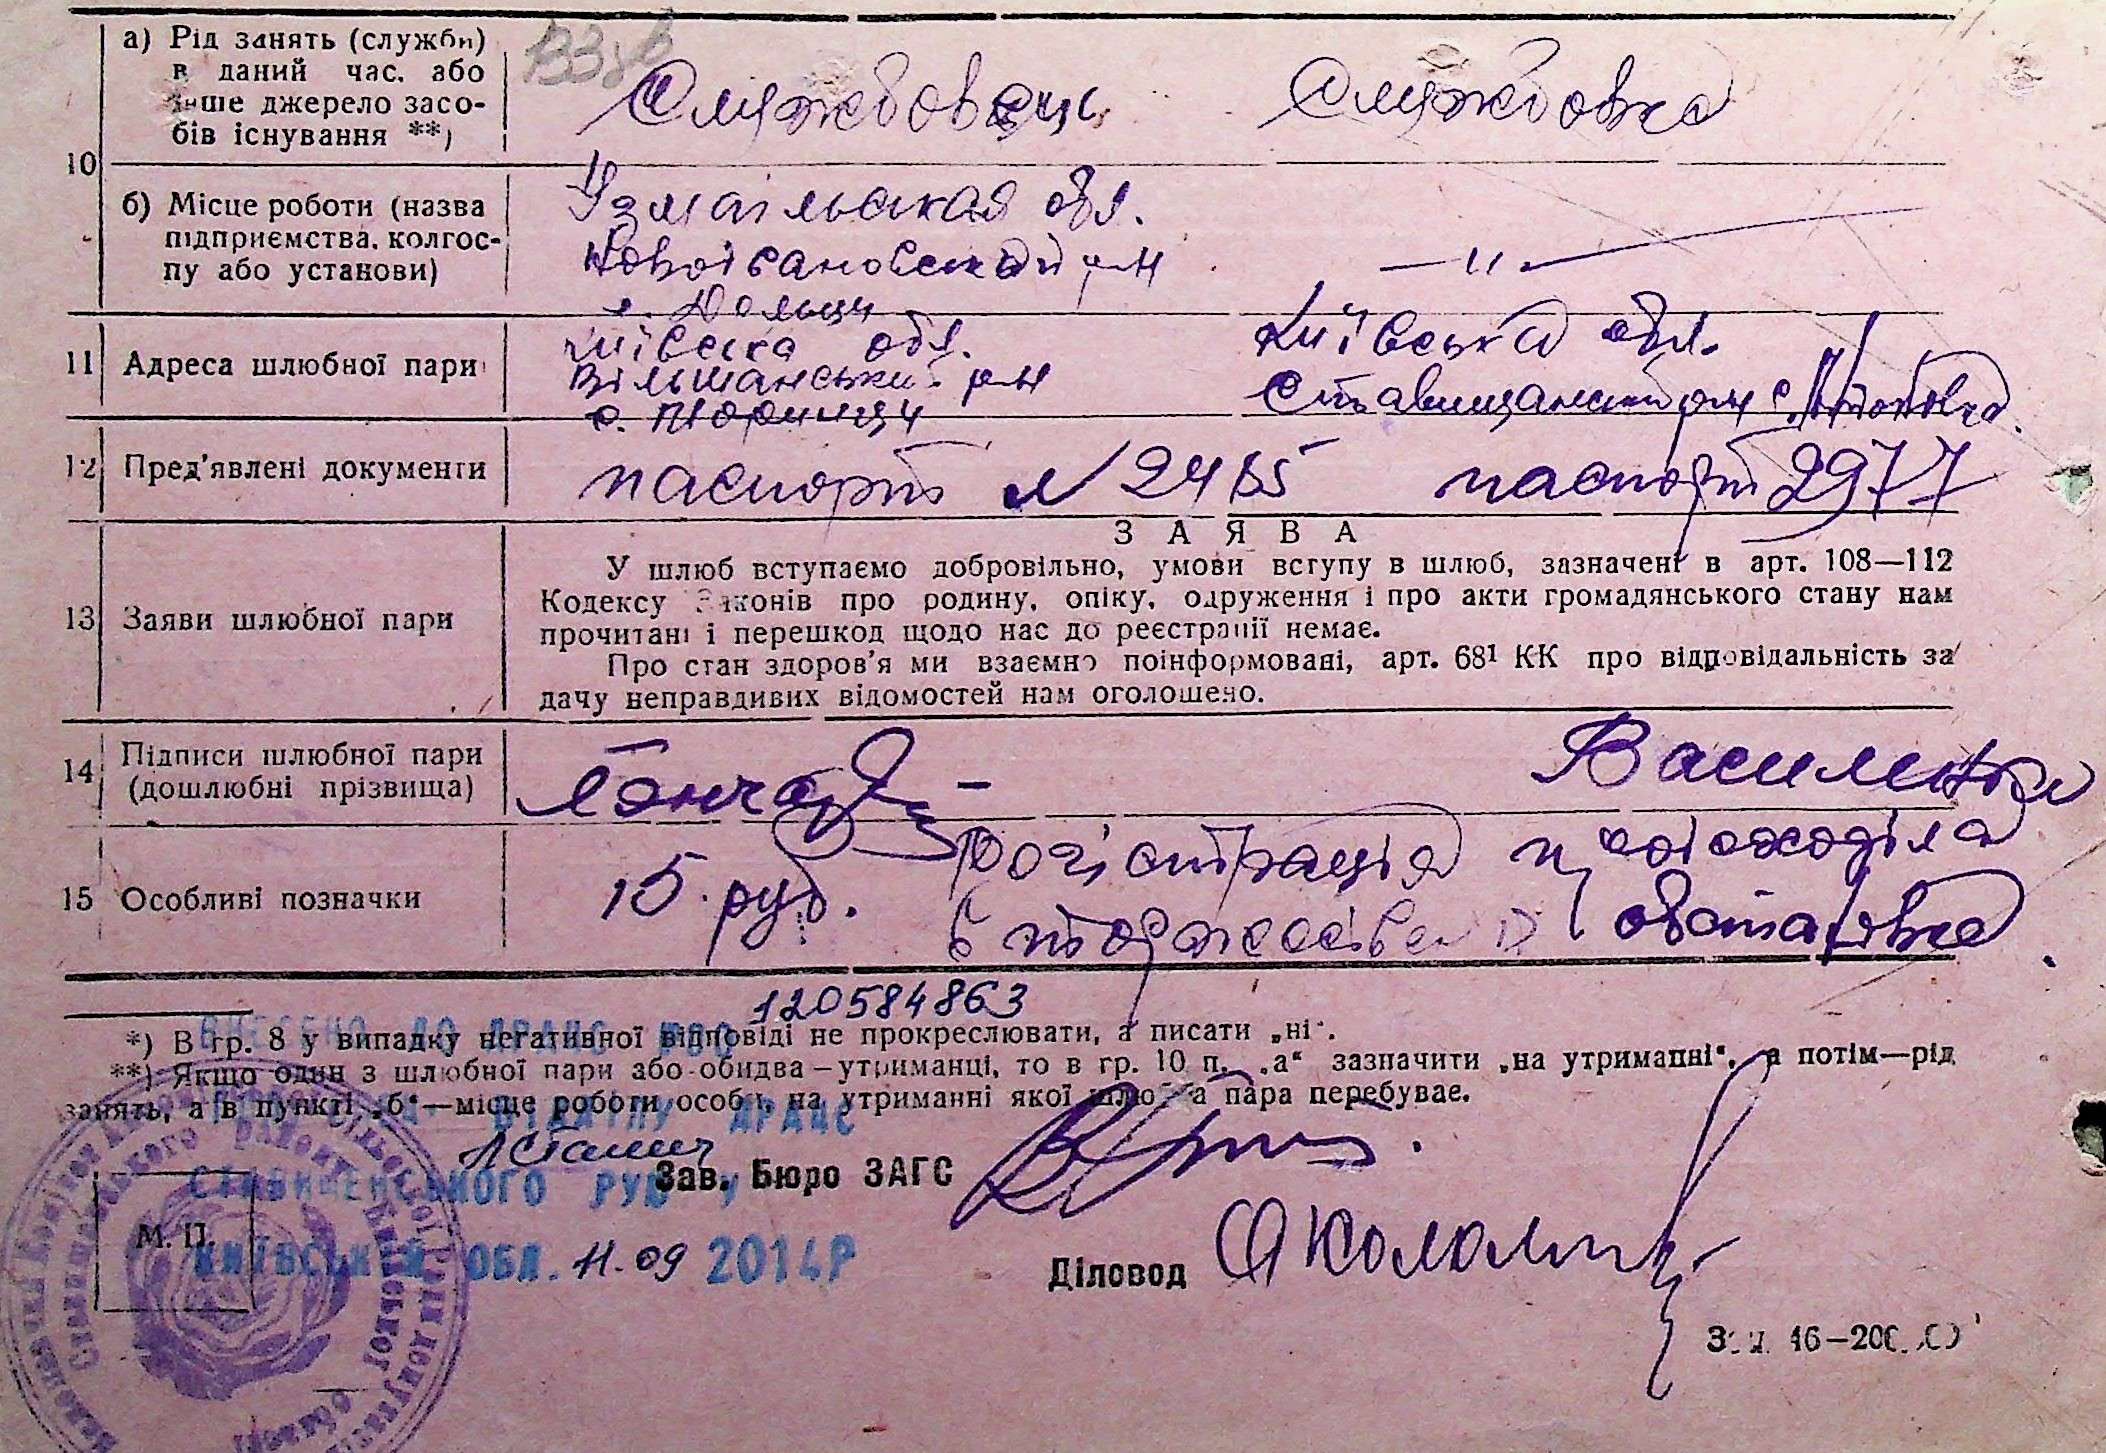 10
а) Рід занять (служби)
в даний час, або
інше джерело засо-
бів існування **)
Службовець
Службовка
б) Місце роботи (назва
підприємства, колгос-
пу або установи)
Ізмаільская обл.
Новоівановський р-н
— „ —
11 Адреса шлюбної пари
Київська обл.
Вільшанський р-н
Київська обл.
Ставищанский р-н с.
12 Пред'явлені документи
паспорт № 2485
паспорт 2977
ЗАЯВА
13 Заяви шлюбної пари
У шлюб вступаємо добровільно, умови вступу в шлюб, зазначені в арт. 108—112
Кодексу Законів про родину, опіку, одруження і про акти громадянського стану нам
прочитані і перешкод щодо нас до реєстрації немає.
Про стан здоров'я ми взаємно поінформовані, арт. 68¹ КК про відповідальність за
дачу неправдивих відомостей нам оголошено.
14 Підписи шлюбної пари
(дошлюбні прізвища)
Гончар
Василенко
15 Особливі позначки
15 руб.
регістрація
в
120584863
*) В гр. 8 у випадку негативної відповіді не прокреслювати, а писати „ні“.
**) Якщо один з шлюбної пари або обидва—утриманці, то в гр. 10 п. „а“ зазначити „на утриманні“, а потім—рід
занять, а в пункті „б“—місце роботи особи, на утриманні якої шлюбна пара перебуває.
ВНЕСЕНО ДО ДРАЦС
ВІДДІЛУ ДРАЦС
СТАВИЩЕНСЬКОГО РУЮ У
КИЇВСЬКІЙ ОБЛ. 11.09 2014Р
М. П.
Зав. Бюро ЗАГС
Діловод